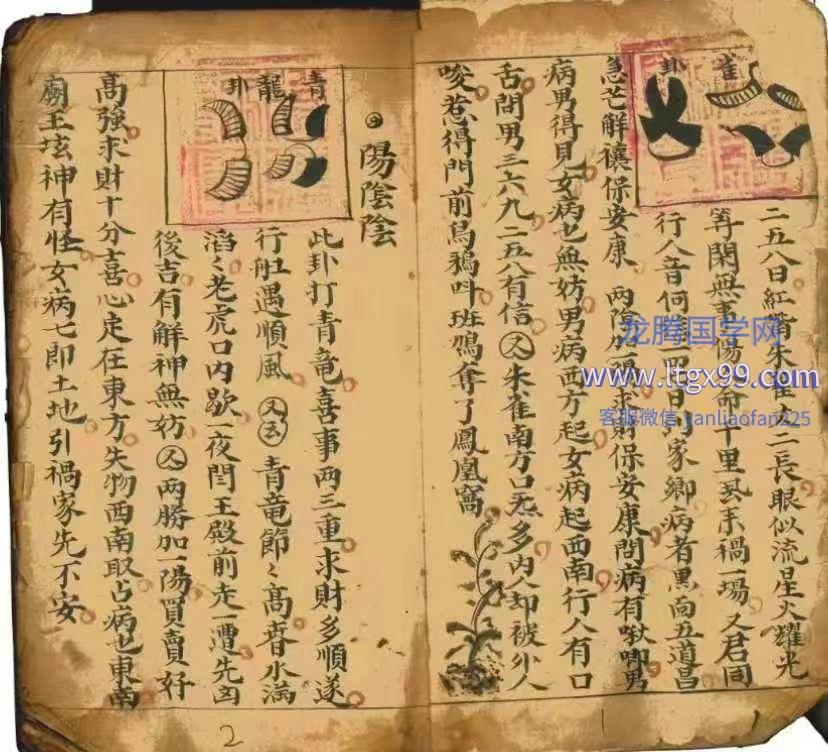 雀卦
二五八日紅朱雀二長眼似流星火耀光
等閑無事傷命千里來禍一場又君同
行人音何四日到家鄉病者黑面五道昌
急芒解禳保安康 兩陰求財保安康問病有啾唧男
病男得見女病乜無妨男病西方起女病起西南行人有口
舌問男三六九二五八有信又朱雀南方口多內人却被外人
唆惹得門前烏鴉叫班鳩奪了鳳凰窩
陽陰陰
青龍卦
此卦打青竜喜事兩三重求財多順遂
行舡遇順風 又云 青竜節々高春水滿
滔々老虎口內歇一夜閆王殿前走一遭先凶
後吉有解神無妨 又 兩勝加一陽買賣好
高強求財十分喜心定在東方失物西南取占病乜東南
廟王坛神有怪女病七即土地引禍家先不安
2
龙腾国学网
www.ltgx99.com
客服微信 yanliaofan225